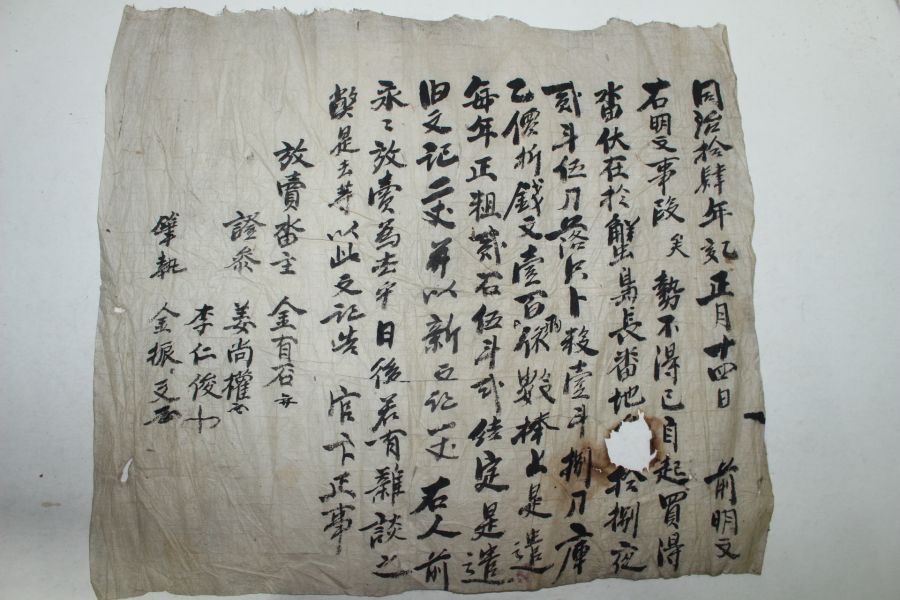 同治拾肆年 乙亥 正月十四日 前明文
右明文事段 矣 勢不得已自起買得
畓伏在於蟹島長畓地 拾捌夜
貳斗伍刀落只卜 殺壹斗捌刀庫
乙價折錢文壹百 兩依數捧上是遣
每年正租貳石伍斗式結定是遣
旧文記二丈并以新文記一丈 右人前
永〻放賣爲去乎日後若有雜談之
弊是去等以此文記告 官卞正事
放賣畓主 金有石
證參 姜尙權
李仁俊
筆執 金振文